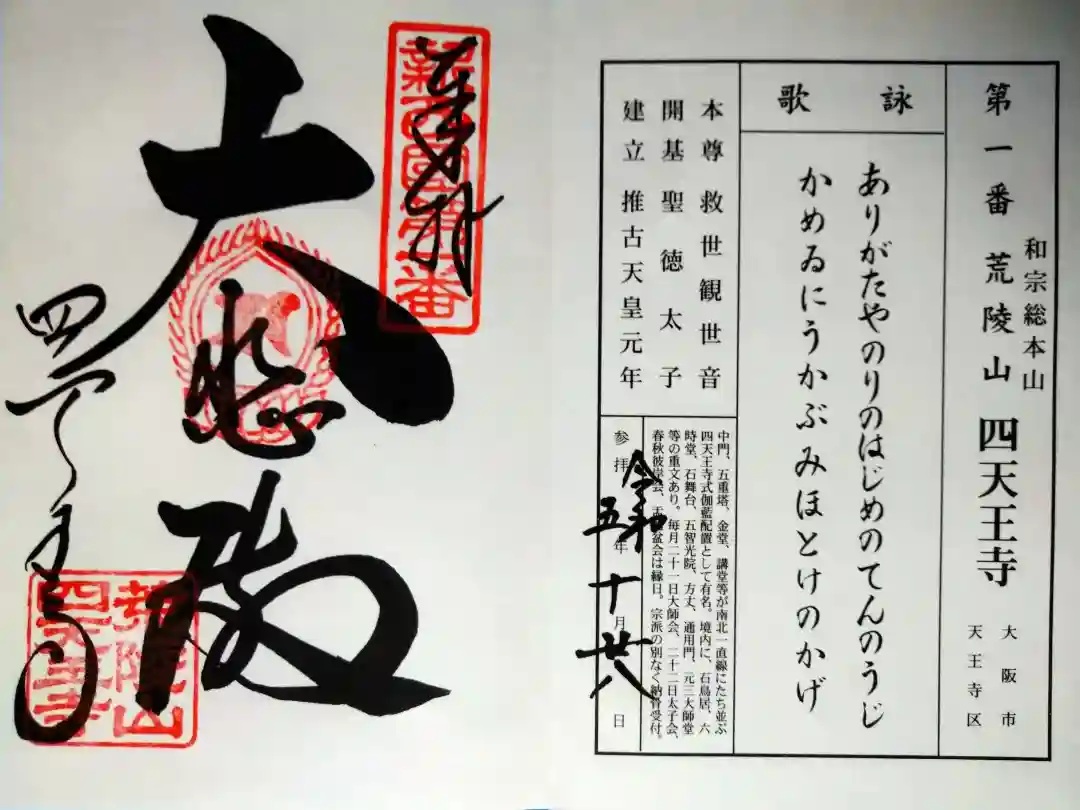 第一番 荒陵山 四天王寺
和宗総本山
大阪市
天王寺区
詠歌
ありがたやのりのはじめのてんのうじ
かめゐにうかぶみほとけのかげ
本尊 救世観世音
開基 聖徳太子
建立 推古天皇元年
中門、五重塔、金堂、講堂等が南北一直線にたち並ぶ
四天王寺式伽藍配置として有名。境内に、石鳥居、六
時堂、石舞台、五智光院、方丈、通用門、元三大師堂
等の重文あり。毎月二十一日大師会、二十二日太子会、
春秋彼岸会、盂蘭盆会は縁日。宗派の別なく納骨受付。
参拝 令和五年十月廿八日
奉拝
新西國第一番
大悲殿
四天王寺
荒陵山
四天王寺